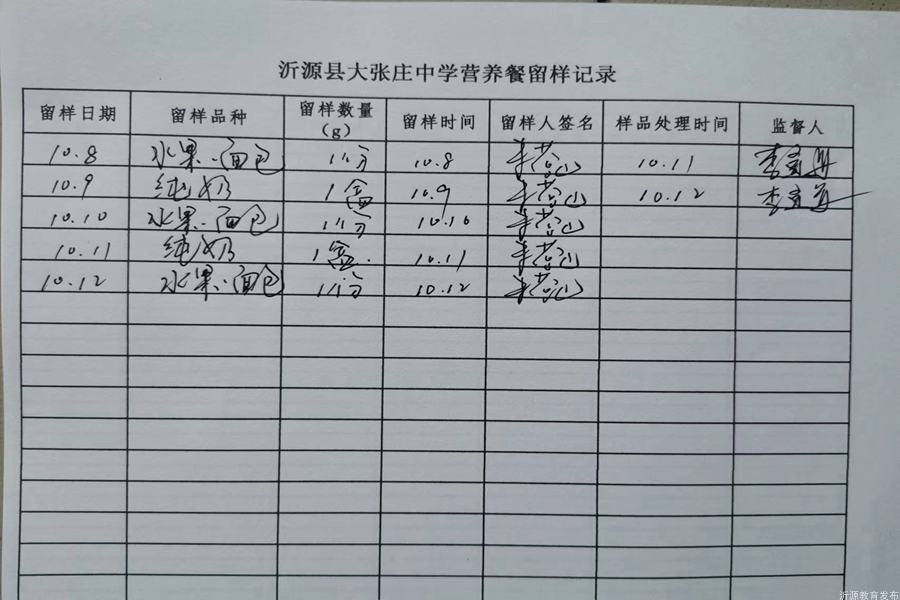 沂源县大张庄中学营养餐留样记录
留样日期 留样品种 留样数量(g) 留样时间 留样人签名 样品处理时间 监督人
10.8 水果、面包 1份 10.8 10.11 李
10.9 纯奶 1盒 10.9 10.12 李
10.10 水果、面包 1份 10.10
10.11 纯奶 1盒 10.11
10.12 水果、面包 1份 10.12
沂源教育发布